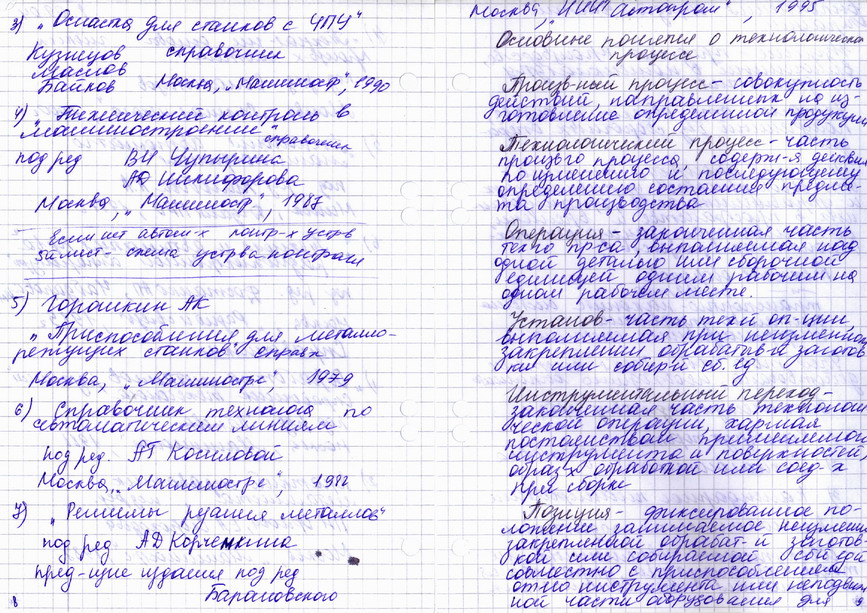 3) „Оснастка для станков с ЧПУ"
Кузнецов справочник
Маслов
Байков Москва, „Машиностр", 1990
4) „Технический контроль в
машиностроении" справочник
под ред ВН Чупырина
АД Никифорова
Москва, „Машиностр", 1987
Если нет автом-х контр-х устр-в
лист- схема устр-ва контроля
5) Горошкин АК
„Приспособления для металло-
режущих станков" справ-к
Москва, „Машиностр", 1979
6) Справочник технолога по
автоматическим линиям
под ред АГ Косиловой
Москва, „Машиностр", 1982
7) „Режимы резания металлов"
под ред АД Корчемкина
пред-щие издания под ред
Барановского
8
Москва, „НИИТавтопром", 1995
Основные понятия о технологическом
процессе
Произв-ный процесс - совокупность
действий, направленных на из
готовление определенной продукции
Технологический процесс - часть
произв-го процесса, содерж-я действия
по изменению и последующему
определению состояния предме-
та производства
Операция - законченная часть
тех-го пр-са, выполняемая над
одной деталью или сборочной
единицей одним рабочим на
одном рабочем месте.
Установ - часть тех-й оп-ции,
выполняемая при неизменном
закреплении обрабатыв-й заготов
ки или собир-й сб. ед
Инструментальный переход -
законченная часть технологи
ческой операции, хар-мая
постоянством применяемого
инструмента и поверхностей,
образ-х обработкой или соед-х
при сборке
Позиция - фиксированное по-
ложение занимаемое неизменно
закрепленной обрабат-й заготов-
кой или собираемой сб.ед
совместно с приспособлением
отн-но инструмента или неподвиж
ной части оборудования для